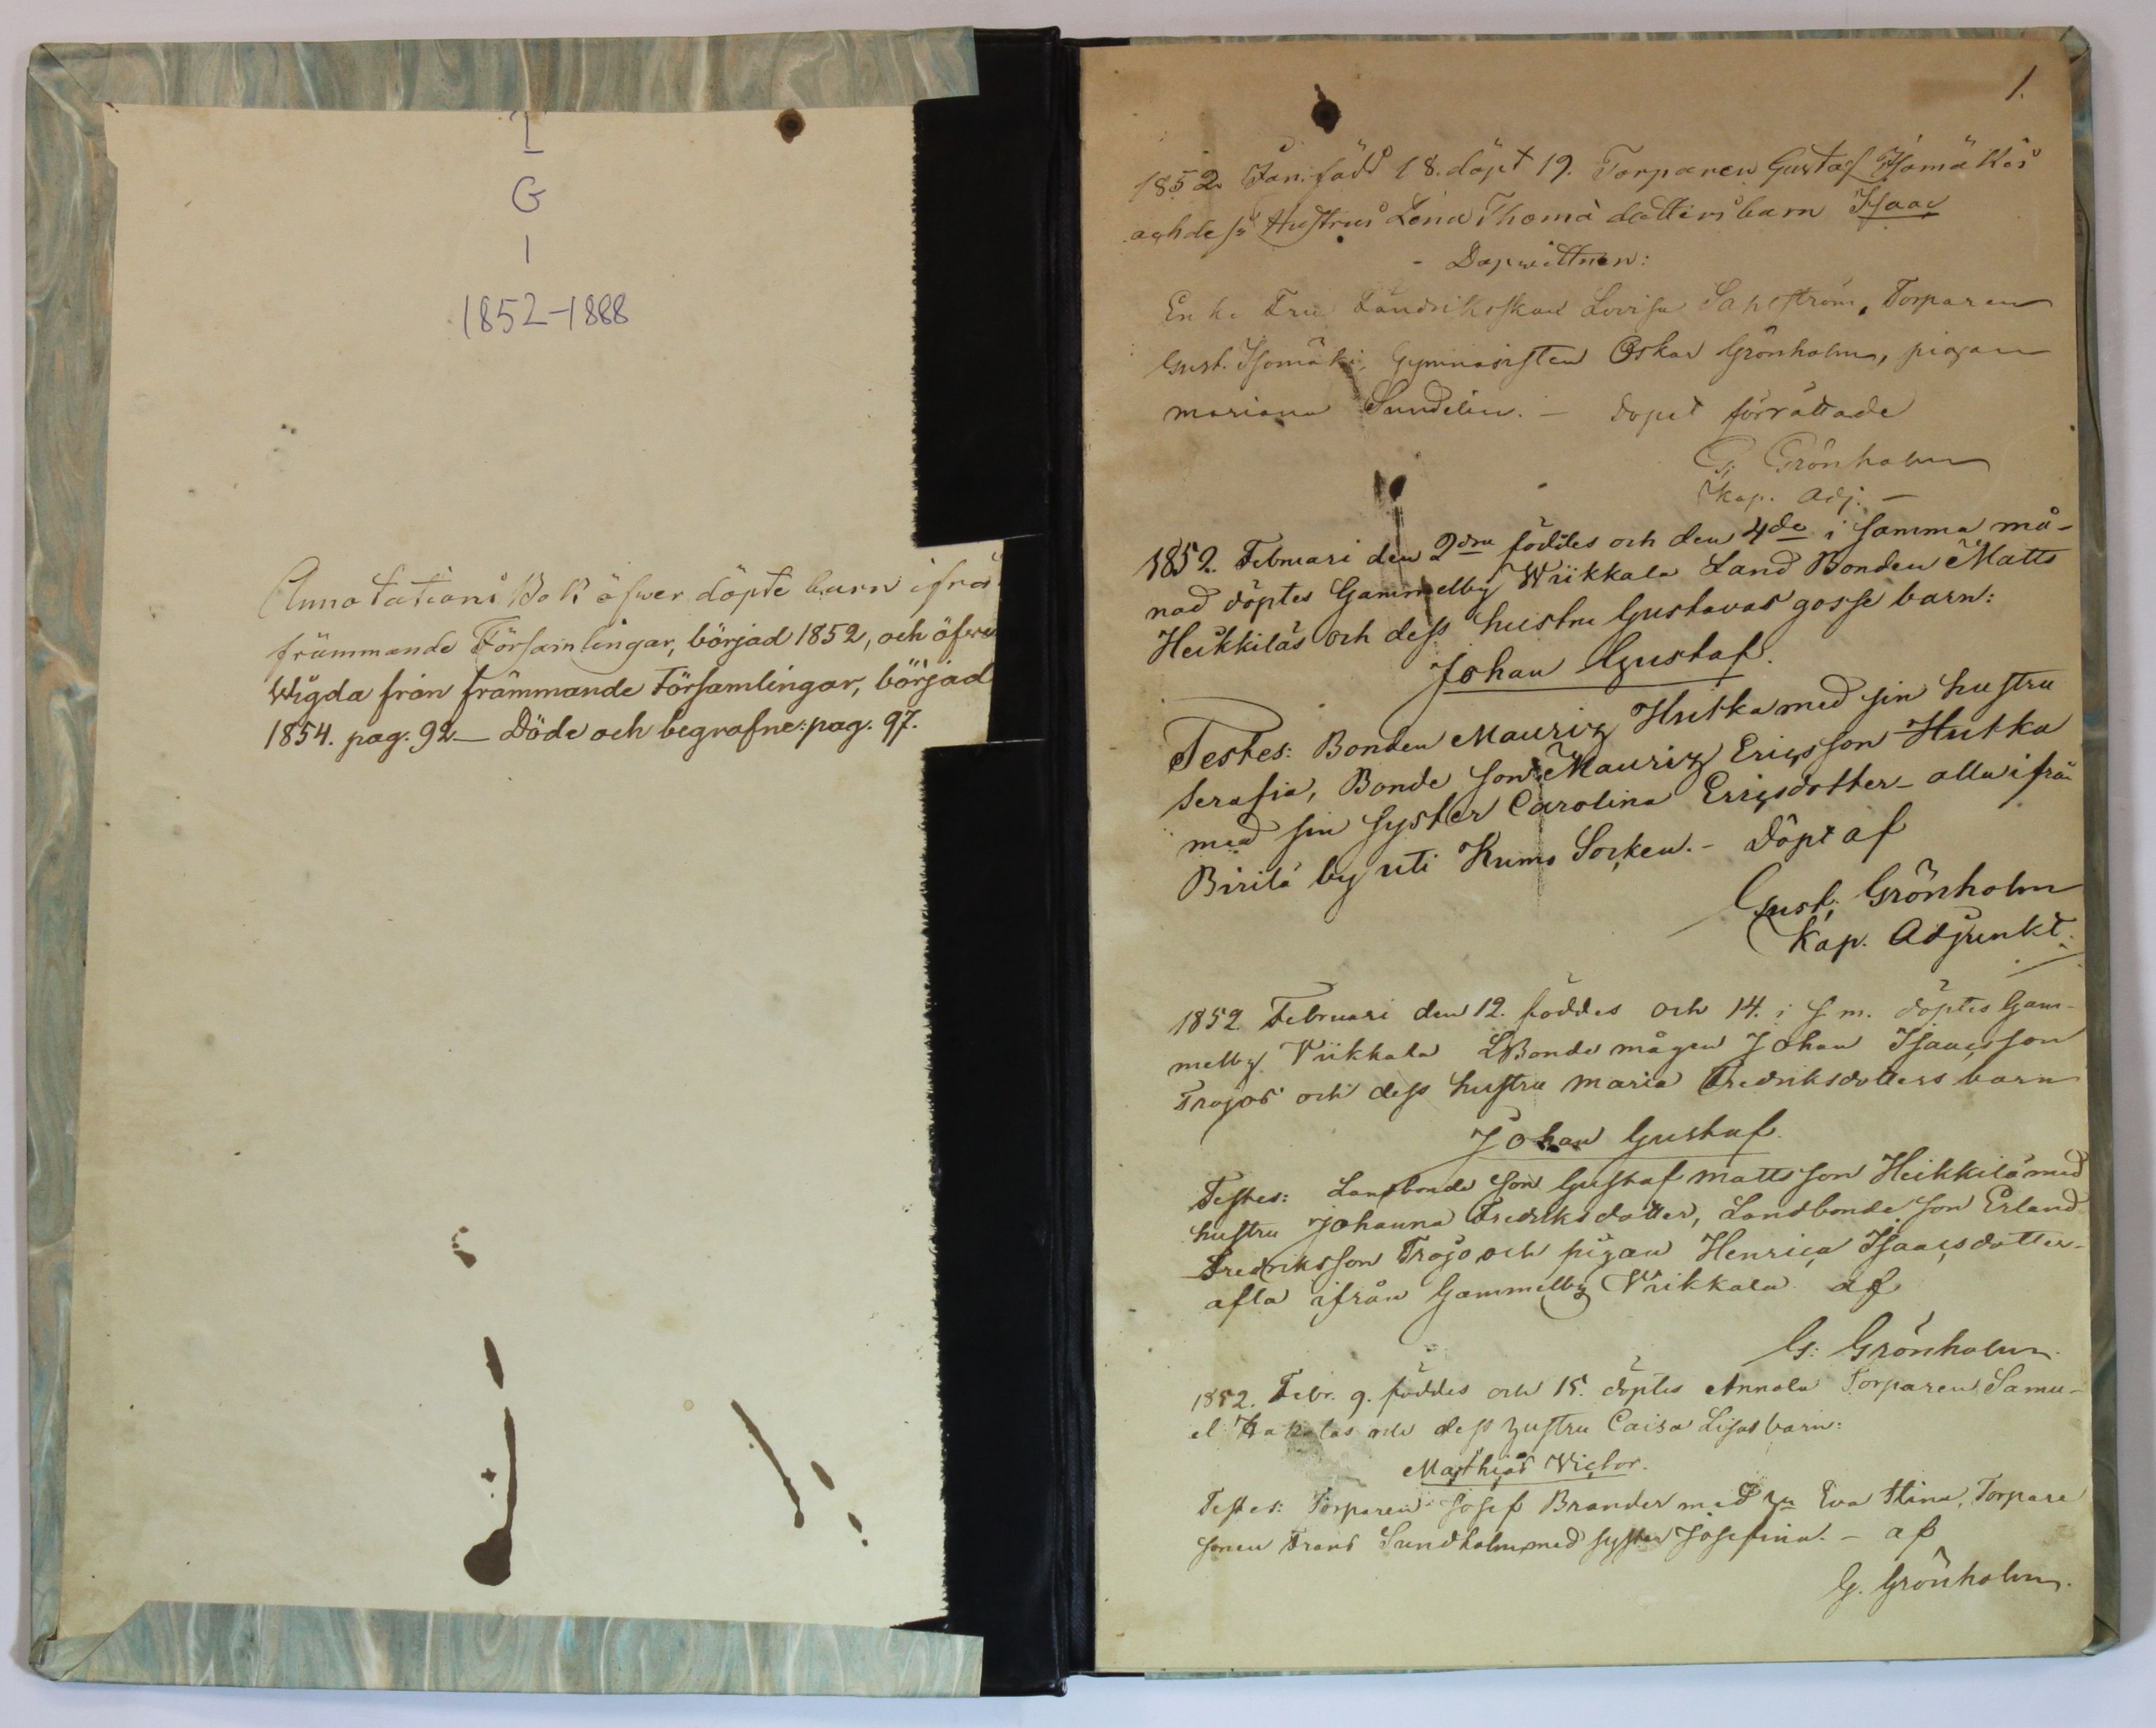 I
G
1
1852-1888
Annotations Bok öfwer döpte barn ifrå
främmande Församlingar, börjad 1852, och öfwer
Wigda från främmande Församlingar, börjad
1854. pag. 92 — Döde och begrafne: pag. 97.
1.
1852 Jan. född 18. döpt 19. Torparen Gustaf Isomäkis
och dess Hustrus Lena Thomä dotters barn Isaac
- Dopwittnen:
Enke Fru Fändrikskan Lovisa Sahlström, Torparen
Gust. Isomäki, Gymnasisten Oskar Grönholm, pigan
Mariana Sundelin. — Dopet förrättade
G. Grönholm
Kap. Adj. —
1852. Februari den 2dra föddes och den 4de i samma må-
nad döptes Gammelby Wiikkala Land Bonden Matts
Heikkiläs och dess hustru Gustavas gosse barn:
Johan Gustaf.
Testes: Bonden Mauriz Hutka med sin hustru
Serafia, Bonde son Mauriz Ericsson Hutka
med sin syster Carolina Ericsdotter - alla ifrån
Birilä by uti Kumo Socken. - Döpt af
Gust. Grönholm
Kap. Adjunkt.
1852 Februari den 12. föddes och 14. i s. m. döptes Gam-
melby Viikkala LBonde mågen Johan Isaacsson
Trojos och dess hustru Maria Fredriksdotters barn
Johan Gustaf.
Testes: Landbonde son Gustaf Mattsson Heikkilä med
hustru Johanna Fredriksdotter, Landbonde son Erland
Fredriksson Trojo och pigan Henrica Isaacsdotter -
alla ifrån Gammelby Viikkala af
G. Grönholm.
1852. Febr. 9. föddes och 15. döptes Annola Torparen Samu-
el och dess hustru Caisa Lisas barn:
Mathias Victor.
Testes: Torparen Josef Brander med hu Eva Stina, Torpare
sonen Frans Sundholm med syster Josefina. - af
G. Grönholm.